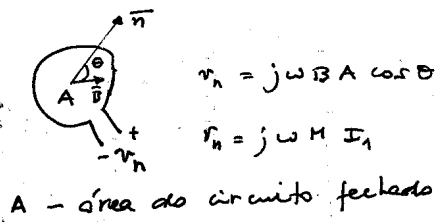 n̅
θ
A B̅
+
- vₙ
vₙ = jωBA cos θ
vₙ = jωM I₁
A - área do circuito fechado